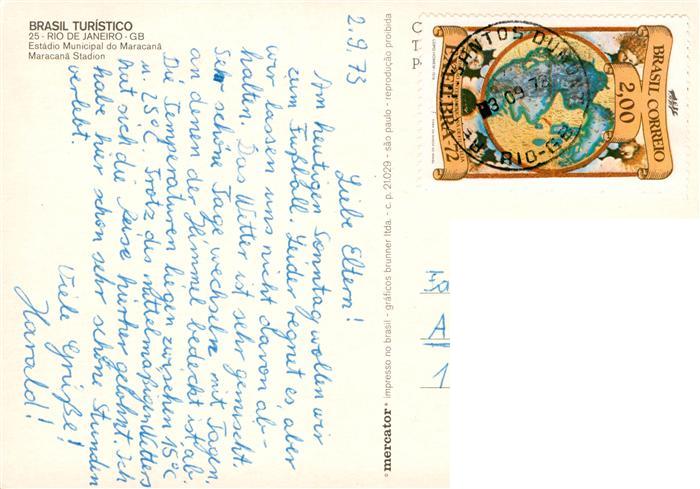 BRASIL TURÍSTICO
25 - RIO DE JANEIRO - GB
Estádio Municipal do Maracanã
Maracanã Stadion
2.9.73
Liebe Eltern!
Am heutigen Sonntag wollen wir
zum Fußball. Leider regnet es, aber
wir lassen uns nicht davon ab-
halten. Das Wetter ist sehr gemischt.
Sehr schöne Tage wechseln mit Tagen,
an denen der Himmel bedeckt ist, ab.
Die Temperaturen liegen zwischen 15°C
u. 25°C. Trotz des mittelmäßigen Wetters
hat sich die Reise hierher gelohnt. Ich
habe hier schon sehr schöne Stunden
verlebt.
Viele Grüße!
Harald!
mercator impresso no brasil - gráficos brunner ltda. - c. p. 21.029 - são paulo - reprodução proibida
C
T
P
BRASIL CORREIO
2,00
EXFILBRA 72
SANTOS DUMONT
3 09 73
RIO-GB
A
1